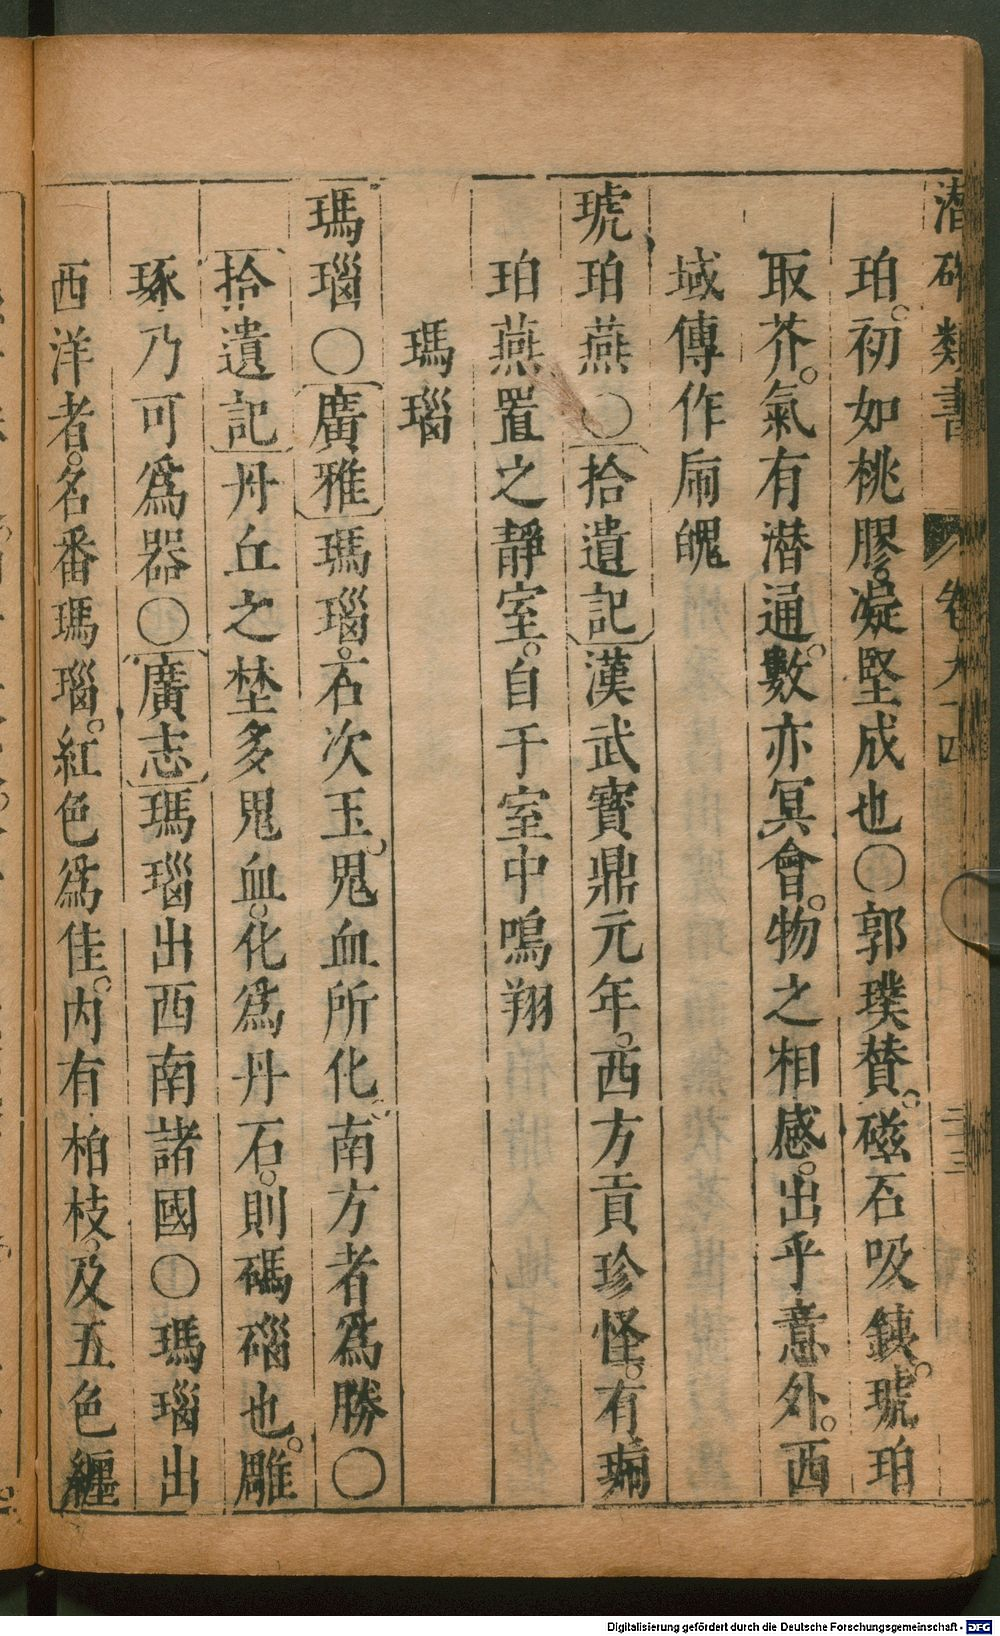 潛確類書 卷九十四 二十三
珀。初如桃膠。凝堅成也○郭璞贊。磁石吸鉄。琥珀
取芥。氣有潜通。數亦冥會。物之相感。出乎意外。西
域傳作
琥珀燕○拾遺記漢武寶鼎元年。西方貢珍怪。有琥
珀燕置之靜室。自于室中鳴翔
瑪瑙
瑪瑙○廣雅瑪瑙。石次玉。鬼血所化。南方者爲勝○
拾遺記丹丘之埜多鬼血。化爲丹石。則碼碯也。雕
琢乃可爲器○廣志瑪瑙出西南諸國○瑪瑙出
西洋者。名番瑪瑙。紅色爲佳。内有柏枝。及五色纏
Digitalisierung gefördert durch die Deutsche Forschungsgemeinschaft - DFG